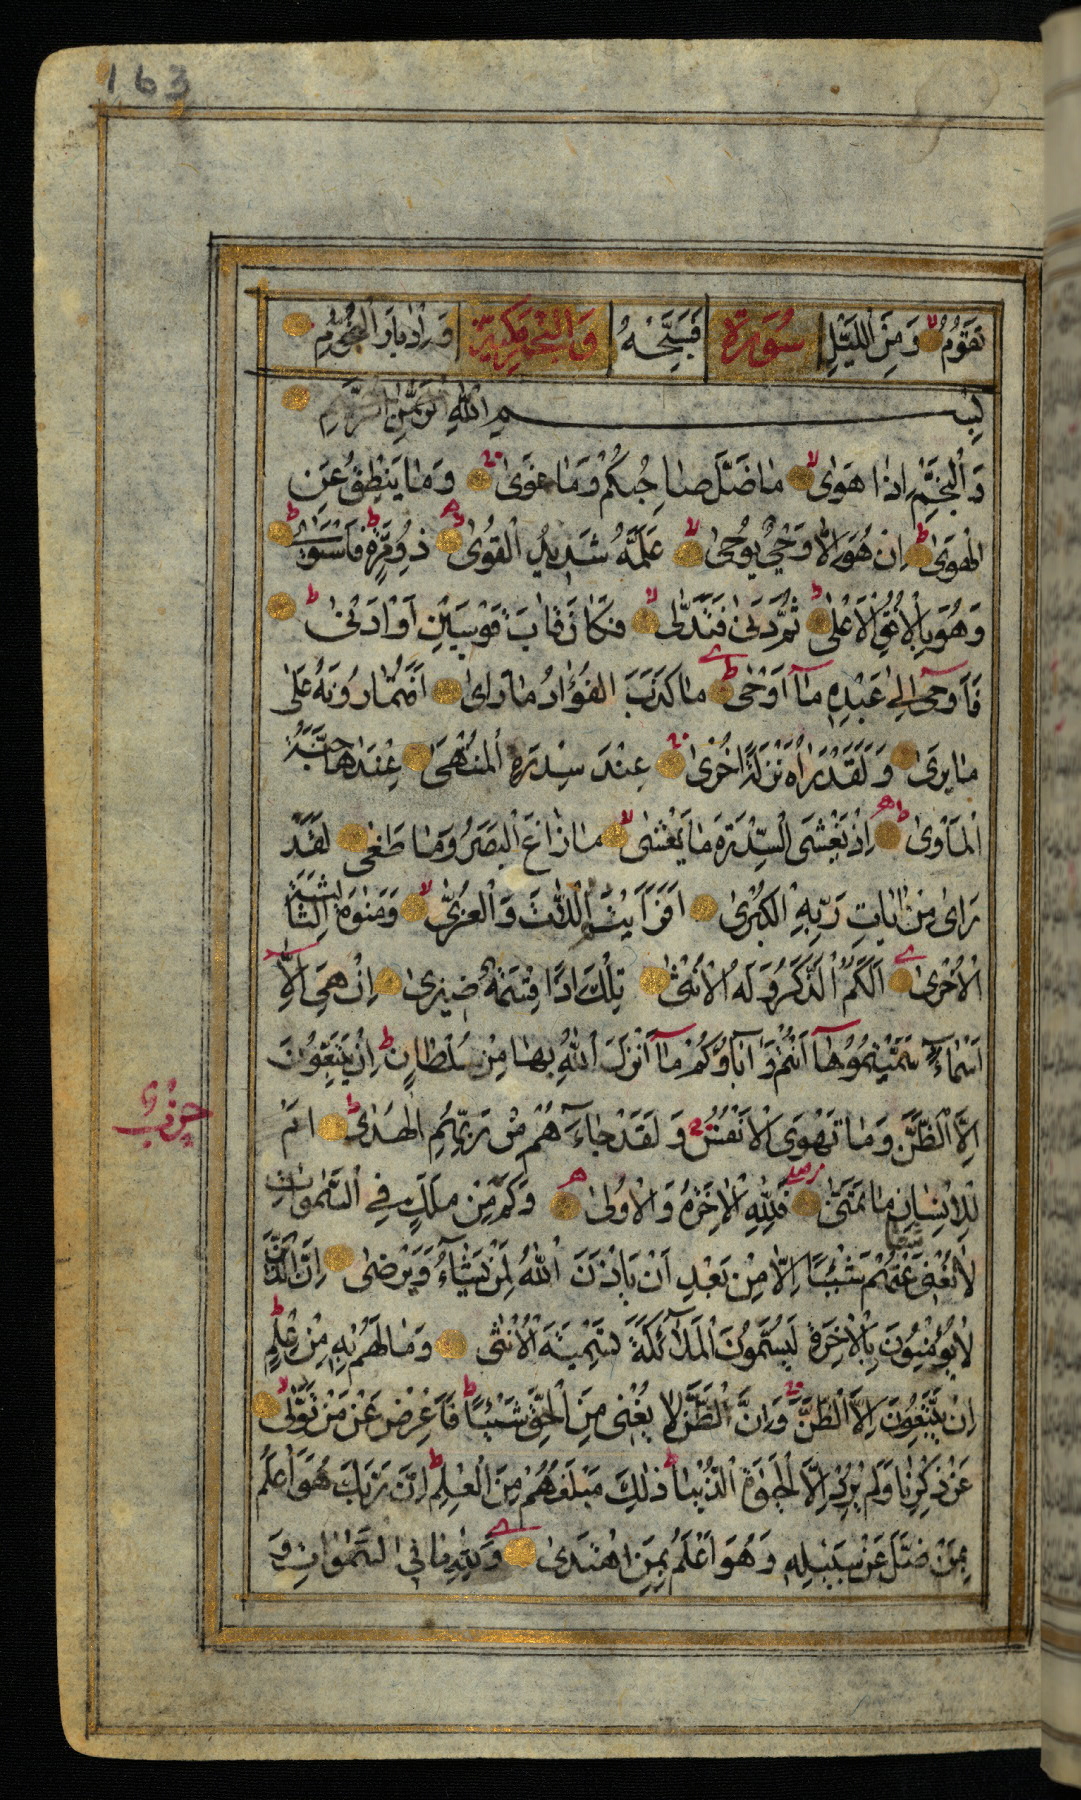 163
تَقُومُ وَمِنَ اللَّيْلِ سُورَة فَسَبِّحْهُ وَالنَّجْمِ مَكِيَّة وَإِدْبَارَ النُّجُومِ
بِسْمِ اللَّهِ الرَّحْمٰنِ الرَّحِيمِ
وَالنَّجْمِ إِذَا هَوٰى مَا ضَلَّ صَاحِبُكُمْ وَمَا غَوٰى وَمَا يَنْطِقُ عَنِ
الْهَوٰى إِنْ هُوَ إِلَّا وَحْيٌ يُوحٰى عَلَّمَهُ شَدِيدُ الْقُوٰى ذُو مِرَّةٍ فَاسْتَوٰى
وَهُوَ بِالْأُفُقِ الْأَعْلٰى ثُمَّ دَنٰى فَتَدَلّٰى فَكَانَ قَابَ قَوْسَيْنِ أَوْ أَدْنٰى
فَأَوْحٰى إِلٰى عَبْدِهِ مَا أَوْحٰى مَا كَذَبَ الْفُؤَادُ مَا رَاٰى أَفَتُمَارُونَهُ عَلٰى
مَا يَرٰى وَلَقَدْ رَاٰهُ نَزْلَةً أُخْرٰى عِنْدَ سِدْرَةِ الْمُنْتَهٰى عِنْدَهَا جَنَّةُ
الْمَأْوٰى إِذْ يَغْشَى السِّدْرَةَ مَا يَغْشٰى مَا زَاغَ الْبَصَرُ وَمَا طَغٰى لَقَدْ
رَاٰى مِنْ اٰيَاتِ رَبِّهِ الْكُبْرٰى أَفَرَأَيْتُمُ اللَّاتَ وَالْعُزّٰى وَمَنٰوةَ الثَّالِثَةَ
الْأُخْرٰى أَلَكُمُ الذَّكَرُ وَلَهُ الْأُنْثٰى تِلْكَ إِذًا قِسْمَةٌ ضِيزٰى إِنْ هِيَ إِلَّا
أَسْمَاءٌ سَمَّيْتُمُوهَا أَنْتُمْ وَآبَاؤُكُمْ مَا أَنْزَلَ اللَّهُ بِهَا مِنْ سُلْطَانٍ إِنْ يَتَّبِعُونَ
إِلَّا الظَّنَّ وَمَا تَهْوَى الْأَنْفُسُ وَلَقَدْ جَاءَهُمْ مِنْ رَبِّهِمُ الْهُدٰى أَمْ
لِلْإِنْسَانِ مَا تَمَنّٰى فَلِلَّهِ الْاٰخِرَةُ وَالْأُولٰى وَكَمْ مِنْ مَلَكٍ فِي السَّمٰوَاتِ
لَا تُغْنِي شَفَاعَتُهُمْ شَيْئًا إِلَّا مِنْ بَعْدِ أَنْ يَأْذَنَ اللَّهُ لِمَنْ يَشَاءُ وَيَرْضٰى إِنَّ الَّذِينَ
لَا يُؤْمِنُونَ بِالْاٰخِرَةِ لَيُسَمُّونَ الْمَلَآئِكَةَ تَسْمِيَةَ الْأُنْثٰى وَمَا لَهُمْ بِهِ مِنْ عِلْمٍ
إِنْ يَتَّبِعُونَ إِلَّا الظَّنَّ وَإِنَّ الظَّنَّ لَا يُغْنِي مِنَ الْحَقِّ شَيْئًا فَأَعْرِضْ عَنْ مَنْ تَوَلّٰى
عَنْ ذِكْرِنَا وَلَمْ يُرِدْ إِلَّا الْحَيٰوةَ الدُّنْيَا ذٰلِكَ مَبْلَغُهُمْ مِنَ الْعِلْمِ إِنَّ رَبَّكَ هُوَ أَعْلَمُ
بِمَنْ ضَلَّ عَنْ سَبِيلِهِ وَهُوَ أَعْلَمُ بِمَنِ اهْتَدٰى وَلِلَّهِ مَا فِي السَّمٰوَاتِ وَ